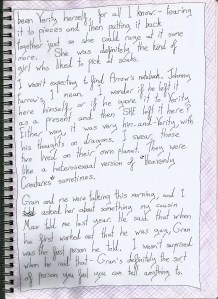 been Verity herself, for all I know - tearing
it to pieces and then putting it back
together just so she could rage at it some
more. She was definitely the kind of
girl who liked to pick at scabs.
I wasn't expecting to find Arrow's notebook. Johnny
Arrow's, I mean. I wonder if he left it
here himself, or if he gave it to Verity
as a present and then SHE left it here?
Either way, it was very him-and-Verity, with
his thoughts on dragons. I swear, those
two lived on their own planet. They were
like a heterosexual version of "Heavenly
Creatures" sometimes.
Gran and me were talking this morning, and I
asked her about something my cousin
Max told me last year. He said that when
he first worked out that he was gay, Gran
was the first person he told. I wasn't surprised
when he said that - Gran's definitely the sort
of person you feel you can tell anything to.